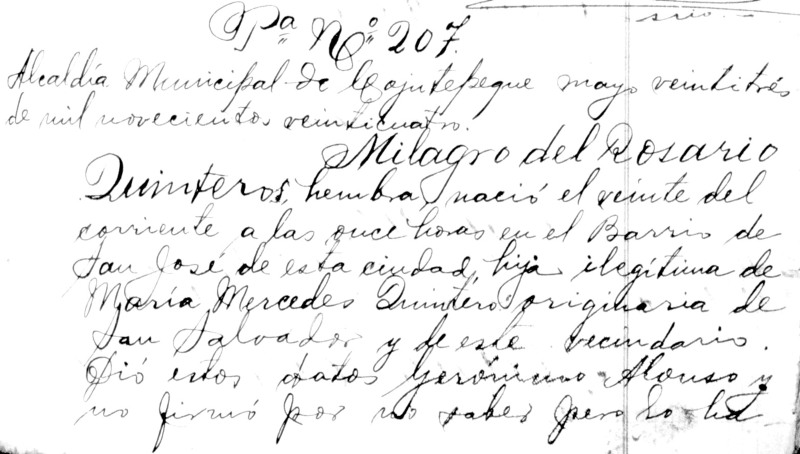 srio.
Pª Nº 207.
Alcaldía Municipal de Cojutepeque mayo veintitrés
de mil novecientos veinticuatro.
Milagro del Rosario
Quinteros, hembra, nació el veinte del
corriente a las once horas en el Barrio de
San José de esta ciudad, hija ilegítima de
María Mercedes Quinteros originaria de
San Salvador y de este vecindario.
Dió estos datos Gerónimo Alonso y
no firmó por no saber pero lo ha